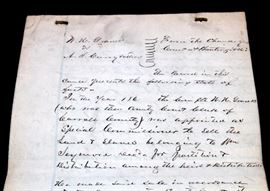 W. H. Graves
vs
A. S. Currey & others
From the Chancery
Court at Huntingdon
Carroll
The Court in this
Cause presents the following state of
facts
In the Year 186 the complt W. H. Graves
(who was then County Court Clerk of
Carroll County) was appointed as
Special Commissioner to sell the
Land & slaves belonging to
decd for Partition &
Distribution among the heirs & distributees
He made said sale in accordance